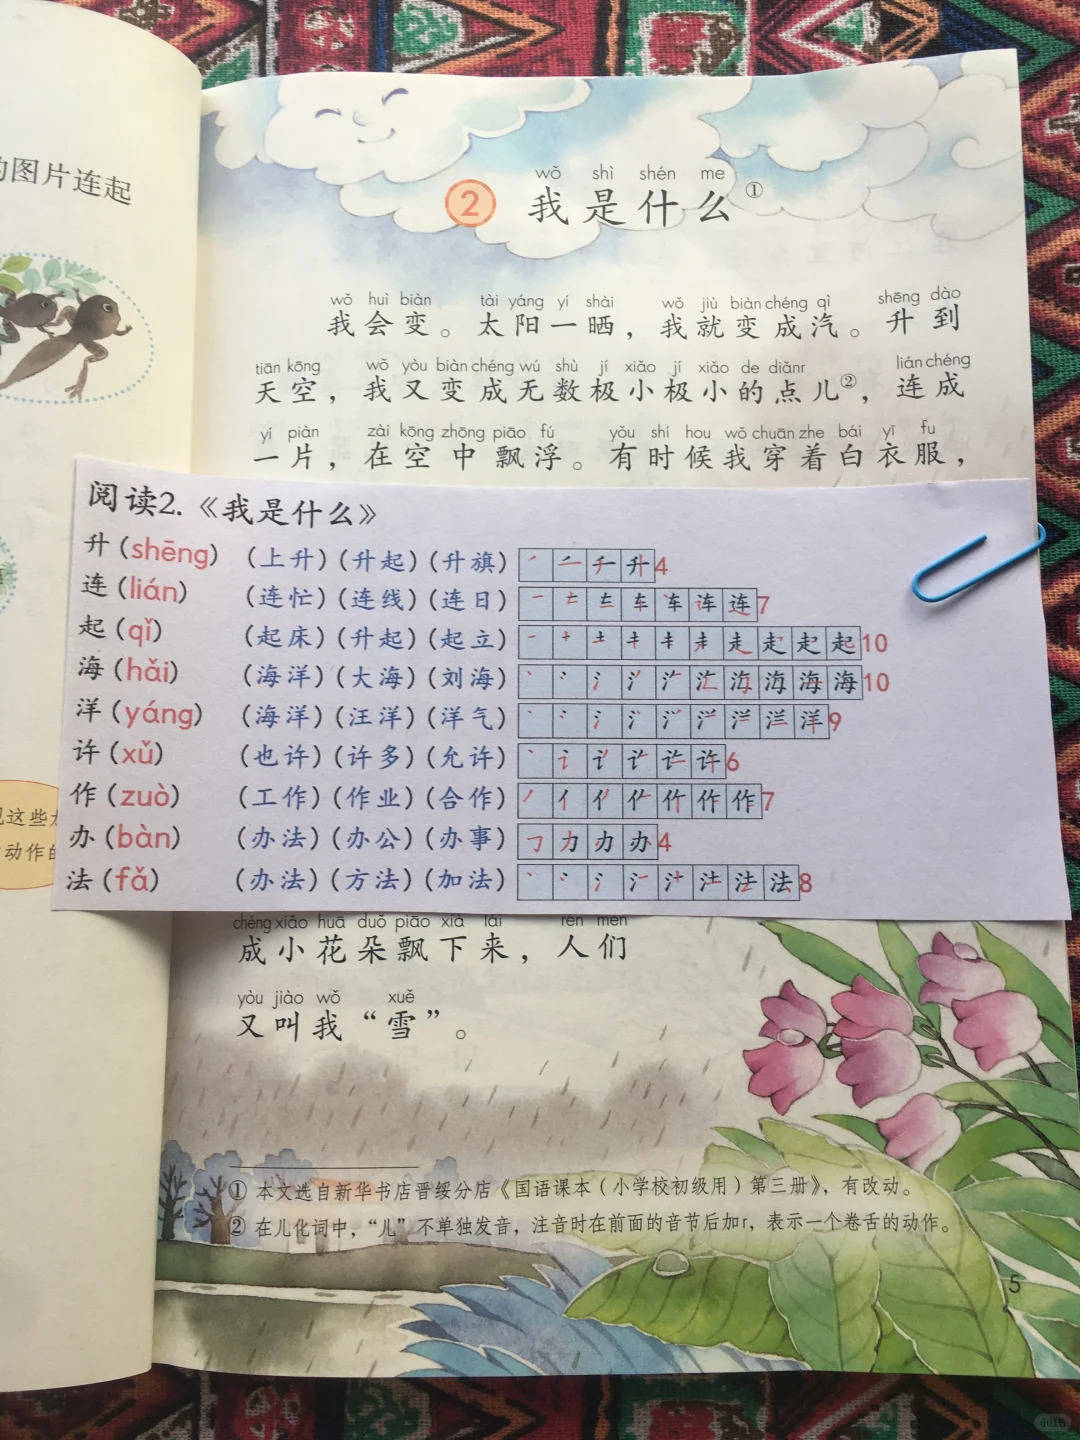 的图片连起
wǒ shì shén me
2 我是什么①
wǒ huì biàn tài yáng yí shài wǒ jiù biàn chéng qì shēng dào
我会变。太阳一晒，我就变成汽。升到
tiān kōng wǒ yòu biàn chéng wú shù jí xiǎo jí xiǎo de diǎnr lián chéng
天空，我又变成无数极小极小的点儿②，连成
yí piàn zài kōng zhōng piāo fú yǒu shí hou wǒ chuān zhe bái yī fu
一片，在空中飘浮。有时候我穿着白衣服，
阅读2.《我是什么》
升(shēng) (上升)(升起)(升旗) 4
连(lián) (连忙)(连线)(连日) 7
起(qǐ) (起床)(升起)(起立) 10
海(hǎi) (海洋)(大海)(刘海) 10
洋(yáng) (海洋)(汪洋)(洋气) 9
许(xǔ) (也许)(许多)(允许) 6
作(zuò) (工作)(作业)(合作) 7
办(bàn) (办法)(办公)(办事) 4
法(fǎ) (办法)(方法)(加法) 8
chéng xiǎo huā duǒ piāo xià lái rén men
成小花朵飘下来，人们
yòu jiào wǒ xuě
又叫我“雪”。
① 本文选自新华书店晋绥分店《国语课本（小学校初级用）第三册》，有改动。
② 在儿化词中，“儿”不单独发音，注音时在前面的音节后加r，表示一个卷舌的动作。
5